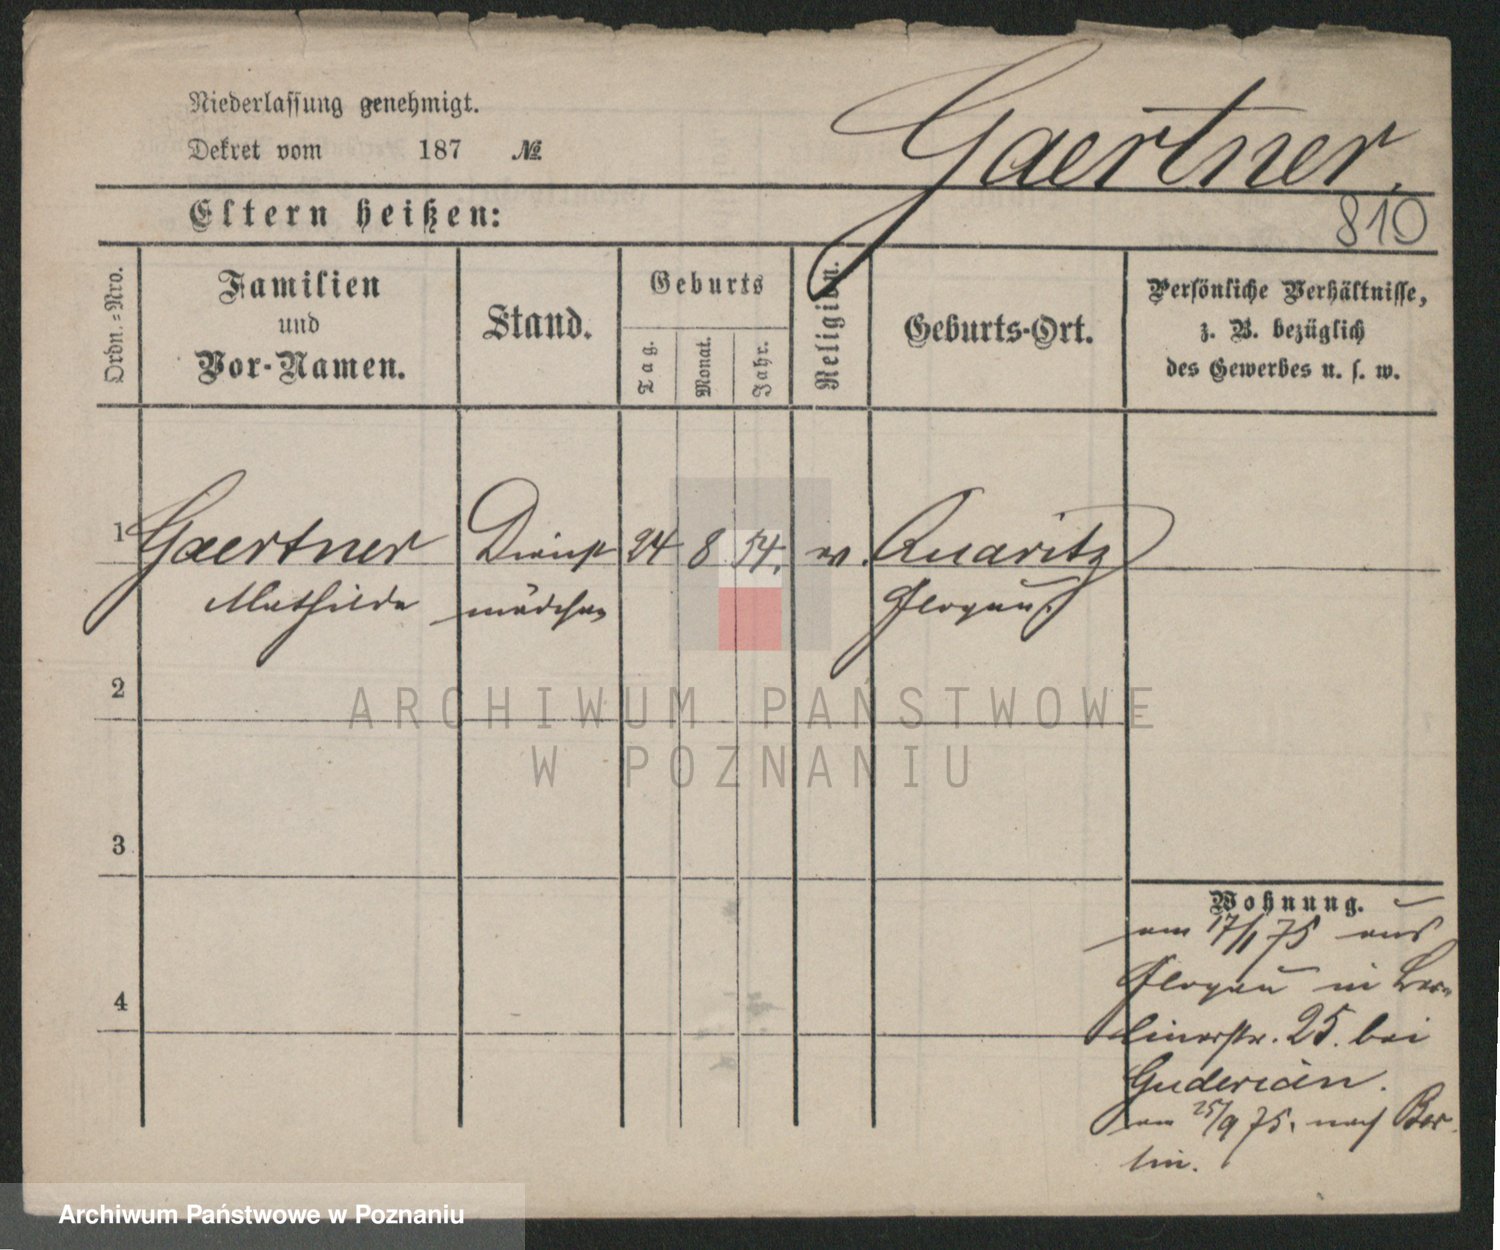 Niederlassung genehmigt.
Dekret vom 187 №
Gaertner.
810
Eltern heißen:
Ordn.-Nro.
Familien und Vor-Namen.
Stand.
Geburts
Tag.
Monat.
Jahr.
Religion.
Geburts-Ort.
Persönliche Verhältnisse,
z. B. bezüglich
des Gewerbes u. s. w.
1 Gaertner Dienst 24 8 54. ev. Quaritz
Mathilde mädchen Glogau.
2
ARCHIWUM PAŃSTWOWE
W POZNANIU
3
Wohnung.
am 17/1 75 aus
Glogau in Ber-
4
linerstr. 25. bei
Guderian.
am 25/9 75. nach Ber-
lin.
Archiwum Państwowe w Poznaniu